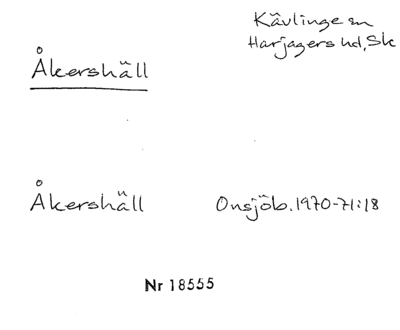 Kävlinge sn
Harjagers hd, Sk
Åkershäll
Åkershäll Onsjöb. 1970-71:18
Nr 18555